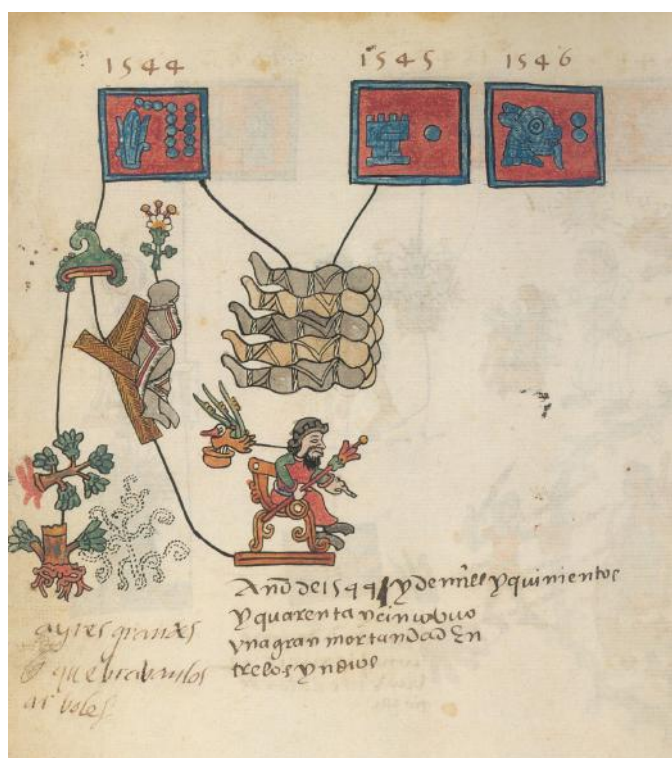 1544
1545
1546
Año de 1544 / y de mill y quinientos
y quarenta y cinco ubuo
vna gran mortandad En
tre los yndios
ayres grandes
que bravan los
arboles